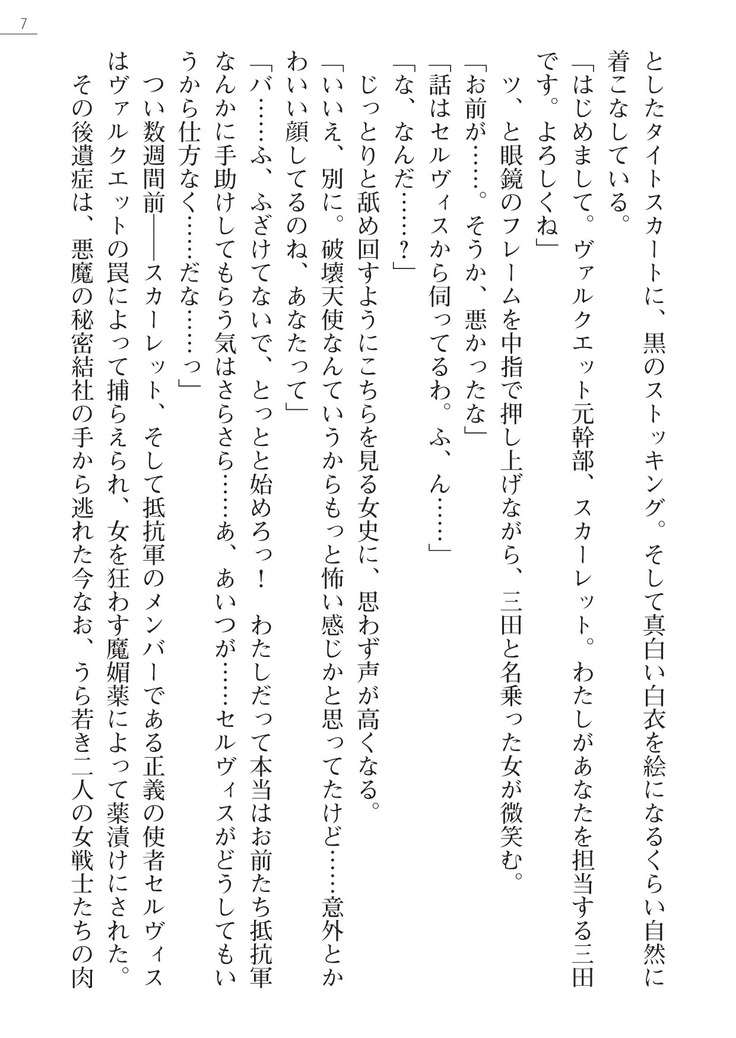 7
としたタイトスカートに、黒のストッキング。そして真白い白衣を絵になるくらい自然に
着こなしている。
「はじめまして。ヴァルクエット元幹部、スカーレット。わたしがあなたを担当する三田
です。よろしくね」
　ツ、と眼鏡のフレームを中指で押し上げながら、三田と名乗った女が微笑む。
「お前が……。そうか、悪かったな」
「話はセルヴィスから伺ってるわ。ふ、ん……」
「な、なんだ……？」
　じっとりと舐め回すようにこちらを見る女史に、思わず声が高くなる。
「いいえ、別に。破壊天使なんていうからもっと怖い感じかと思ってたけど……意外とか
わいい顔してるのね、あなたって」
「バ……ふ、ふざけてないで、とっとと始めろっ！　わたしだって本当はお前たち抵抗軍
なんかに手助けしてもらう気はさらさら……あ、あいつが……セルヴィスがどうしてもい
うから仕方なく……だな……っ」
　つい数週間前――スカーレット、そして抵抗軍のメンバーである正義の使者セルヴィス
はヴァルクエットの罠によって捕らえられ、女を狂わす魔媚薬によって薬漬けにされた。
　その後遺症は、悪魔の秘密結社の手から逃れた今なお、うら若き二人の女戦士たちの肉